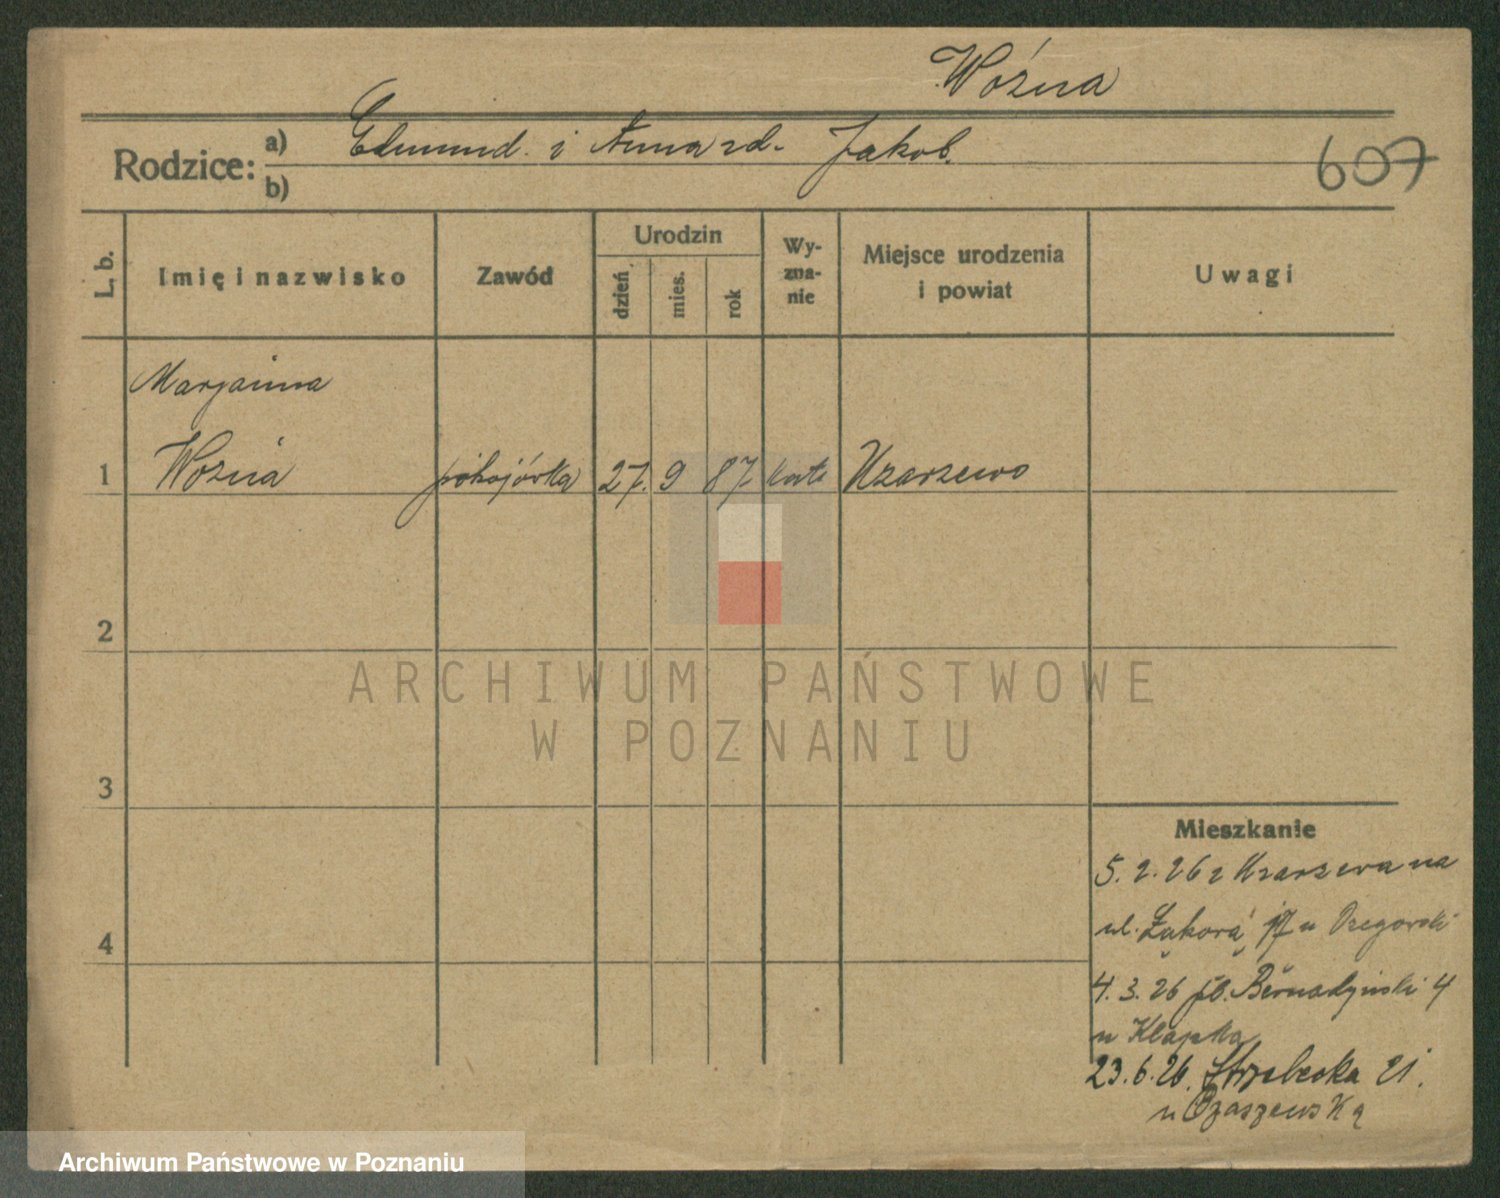 Woźna
Rodzice: a) Edmund i Anna zd. Jakob.
b)
607
L. b.
Imię i nazwisko
Zawód
Urodzin
dzień
mies.
rok
Wy-
zna-
nie
Miejsce urodzenia
i powiat
Uwagi
Marjanna
1 Woźna pokojówka 27. 9 87 kat Uzarzewo
2
ARCHIWUM PAŃSTWOWE
W POZNANIU
3
4
Mieszkanie
5. 2. 26 z Uzarzewa na
ul. Łąkową 17 u
4. 3. 26 pl. Bernadyński 4
u Klapka
23. 6. 26. Strzelecka 21.
u
Archiwum Państwowe w Poznaniu